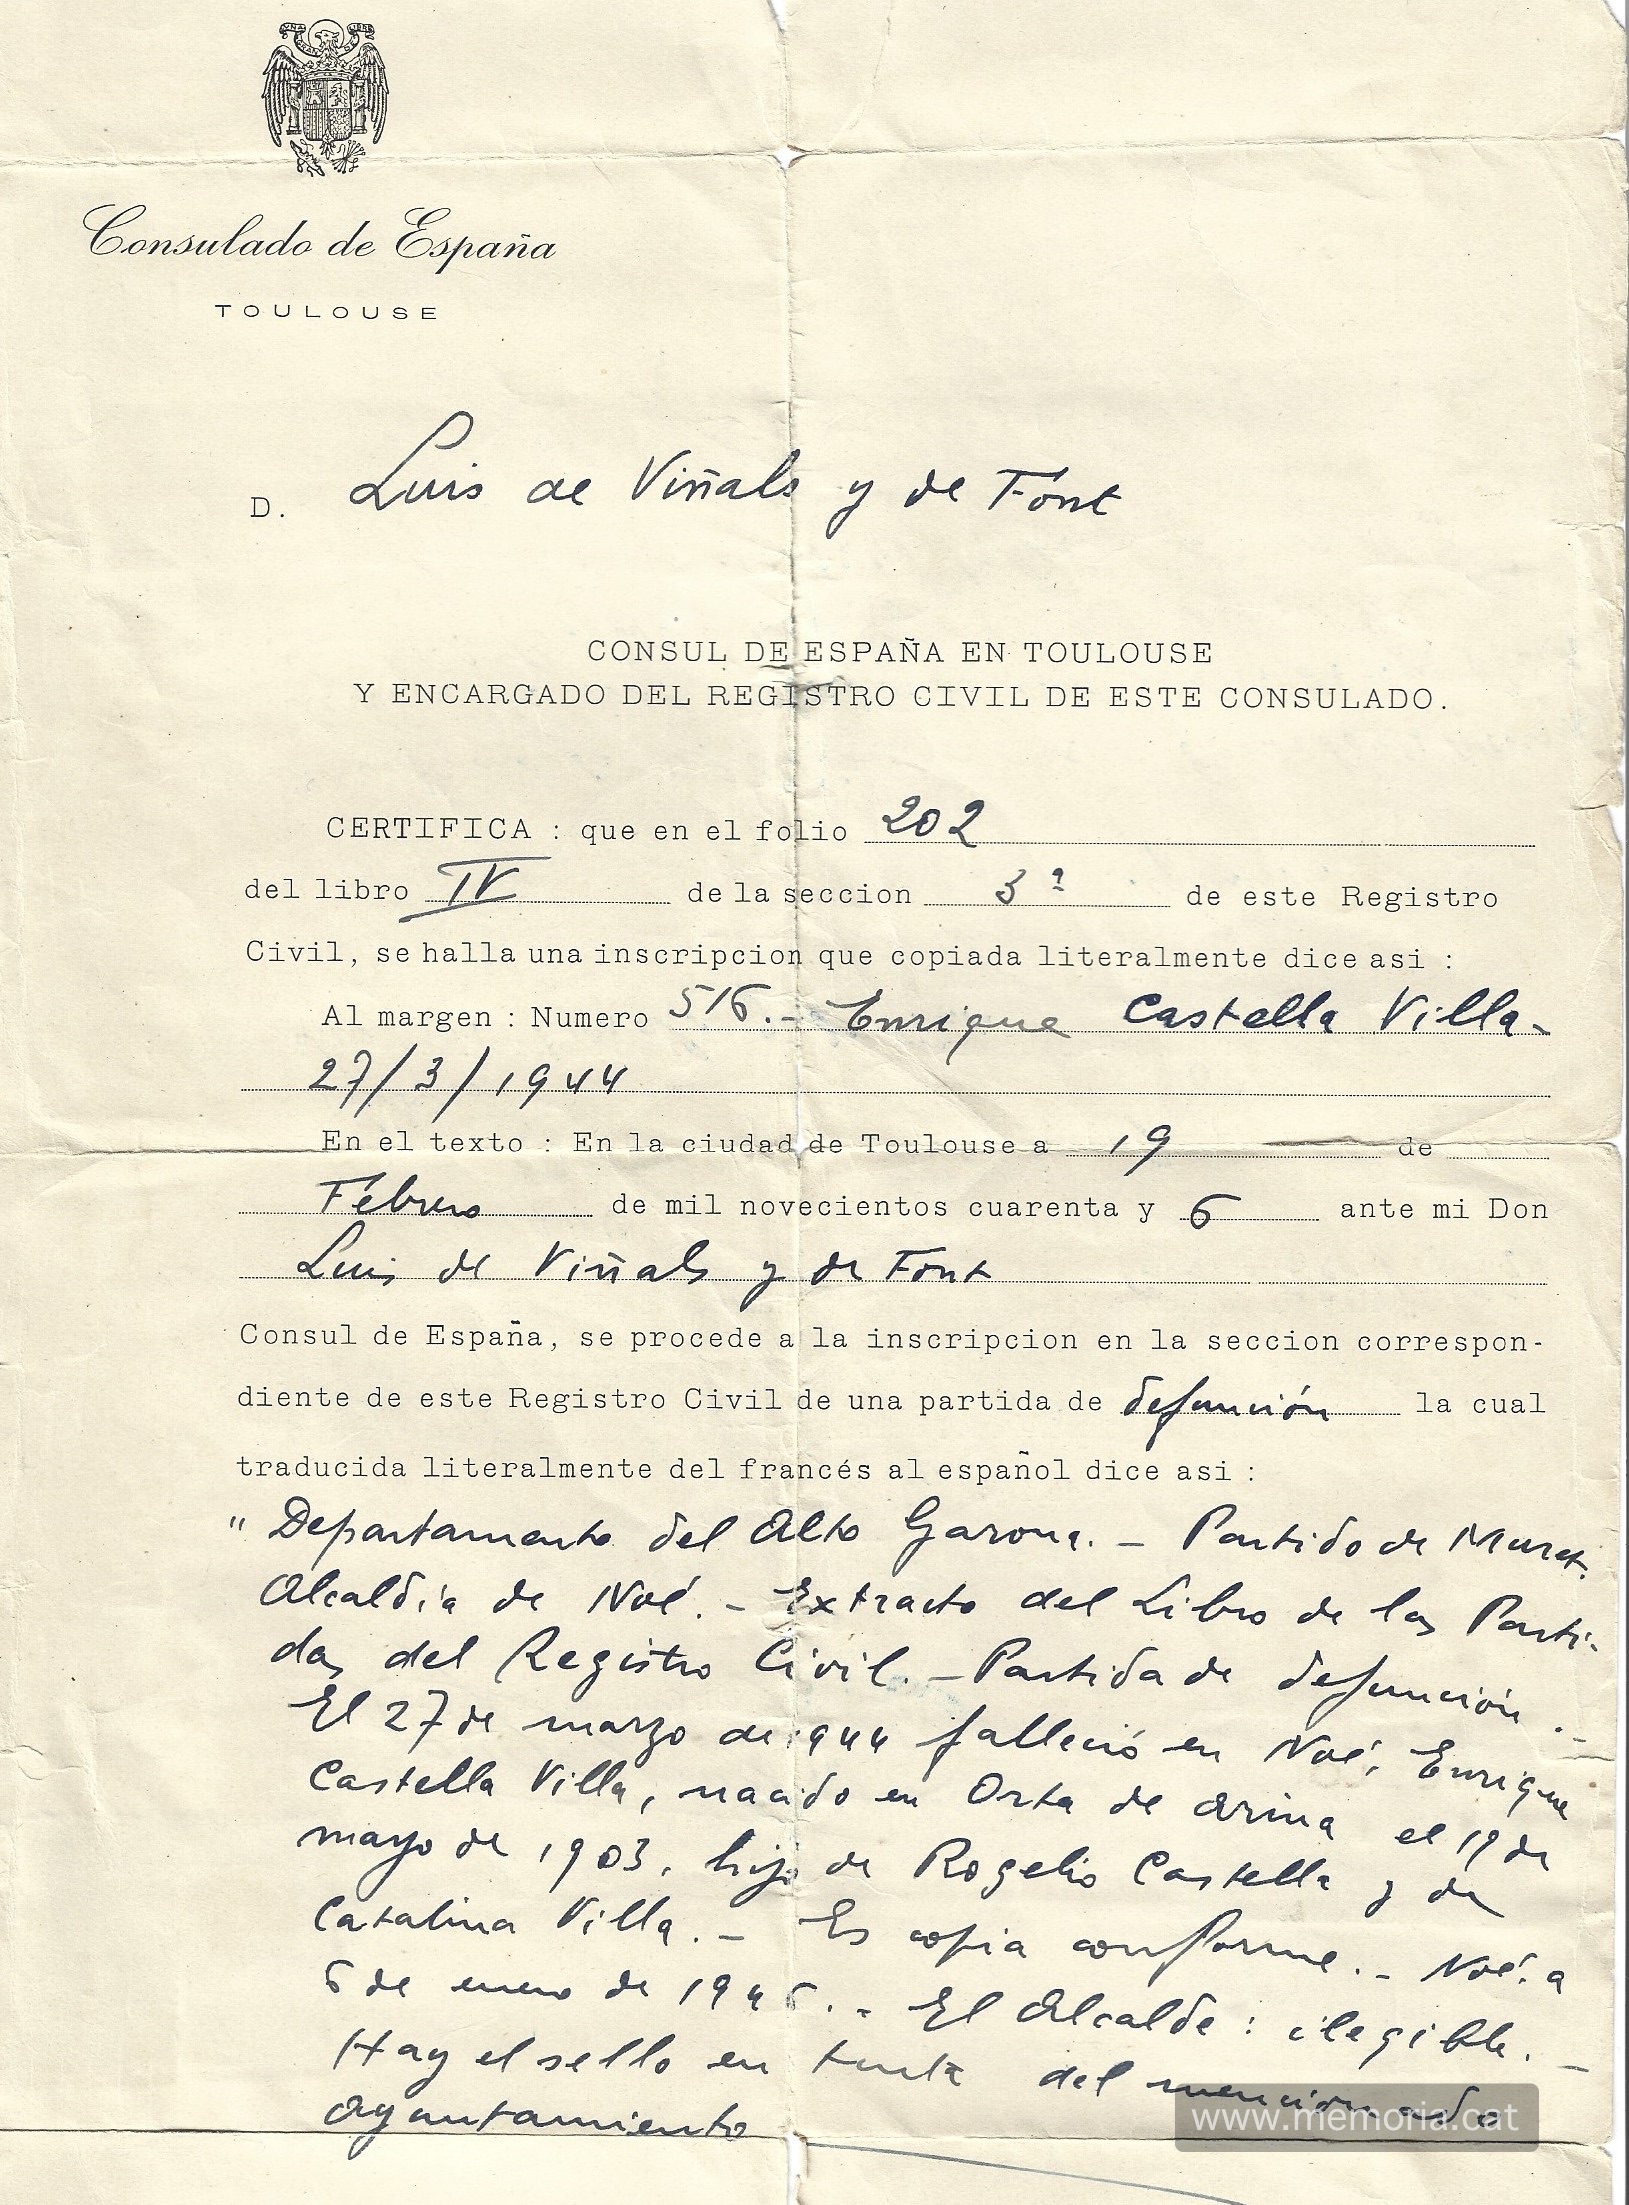 Consulado de España
TOULOUSE
D. Luis de Viñals y de Font
CONSUL DE ESPAÑA EN TOULOUSE
Y ENCARGADO DEL REGISTRO CIVIL DE ESTE CONSULADO.
CERTIFICA : que en el folio 202
del libro IV de la seccion 3ª de este Registro
Civil, se halla una inscripcion que copiada literalmente dice asi :
Al margen : Numero 516.- Enrique Castella Villa-
27/3/1944
En el texto : En la ciudad de Toulouse a 19 de
Febrero de mil novecientos cuarenta y 6 ante mi Don
Luis de Viñals y de Font
Consul de España, se procede a la inscripcion en la seccion correspon-
diente de este Registro Civil de una partida de defunción la cual
traducida literalmente del francés al español dice asi :
" Departamento del Alto Garona. - Partido de Muret.
Alcaldía de Noé. - Extracto del Libro de las Parti-
das del Registro Civil. - Partida de defunción. -
El 27 de marzo de 1944 falleció en Noé, Enrique
Castella Villa, nacido en Orta de Arina el 19 de
mayo de 1903, hijo de Rogelio Castella y de
Catalina Villa. - Es copia conforme. - Noé. a
6 de enero de 1946. - El Alcalde : ilegible. -
Hay el sello en tinta del mencionado
Ayuntamiento
www.memoria.cat